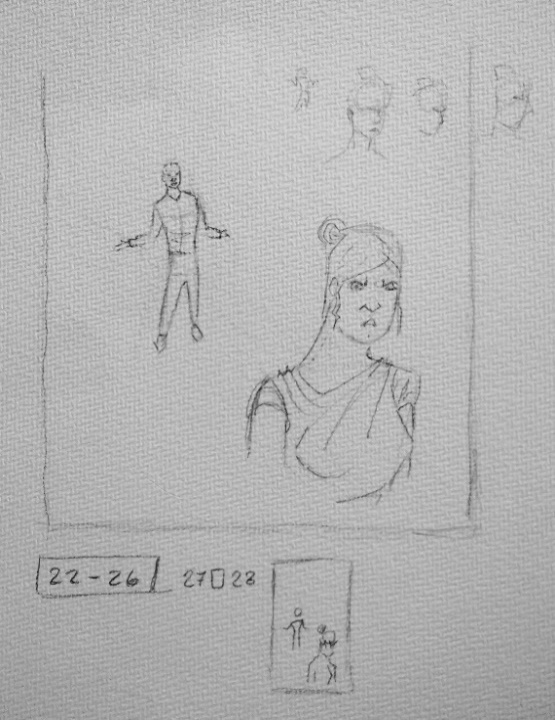 22-26 27□28